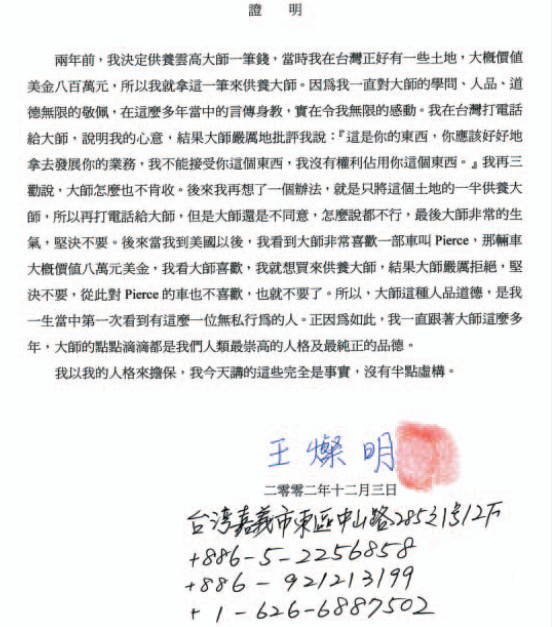 證　明
兩年前，我決定供養雲高大師一筆錢，當時我在台灣正好有一些土地，大概價值
美金八百萬元，所以我就拿這一筆來供養大師。因爲我一直對大師的學問、人品、道
德無限的敬佩，在這麼多年當中的言傳身教，實在令我無限的感動。我在台灣打電話
給大師，說明我的心意，結果大師嚴厲地批評我說：『這是你的東西，你應該好好地
拿去發展你的業務，我不能接受你這個東西，我沒有權利佔用你這個東西。』我再三
勸說，大師怎麼也不肯收。後來我再想了一個辦法，就是只將這個土地的一半供養大
師，所以再打電話給大師，但是大師還是不同意，怎麼說都不行，最後大師非常的生
氣，堅決不要。後來當我到美國以後，我看到大師非常喜歡一部車叫 Pierce，那輛車
大概價値八萬元美金，我看大師喜歡，我就想買來供養大師，結果大師嚴厲拒絕，堅
決不要，從此對 Pierce 的車也不喜歡，也就不要了。所以，大師這種人品道德，是我
一生當中第一次看到有這麼一位無私行爲的人。正因爲如此，我一直跟著大師這麼多
年，大師的點點滴滴都是我們人類最崇高的人格及最純正的品德。
我以我的人格來擔保，我今天講的這些完全是事實，沒有半點虛構。
王燦明
二零零二年十二月三日
台湾嘉義市東區中山路285之1号12下
+886-5-2256858
+886-921213199
+1-626-6887502